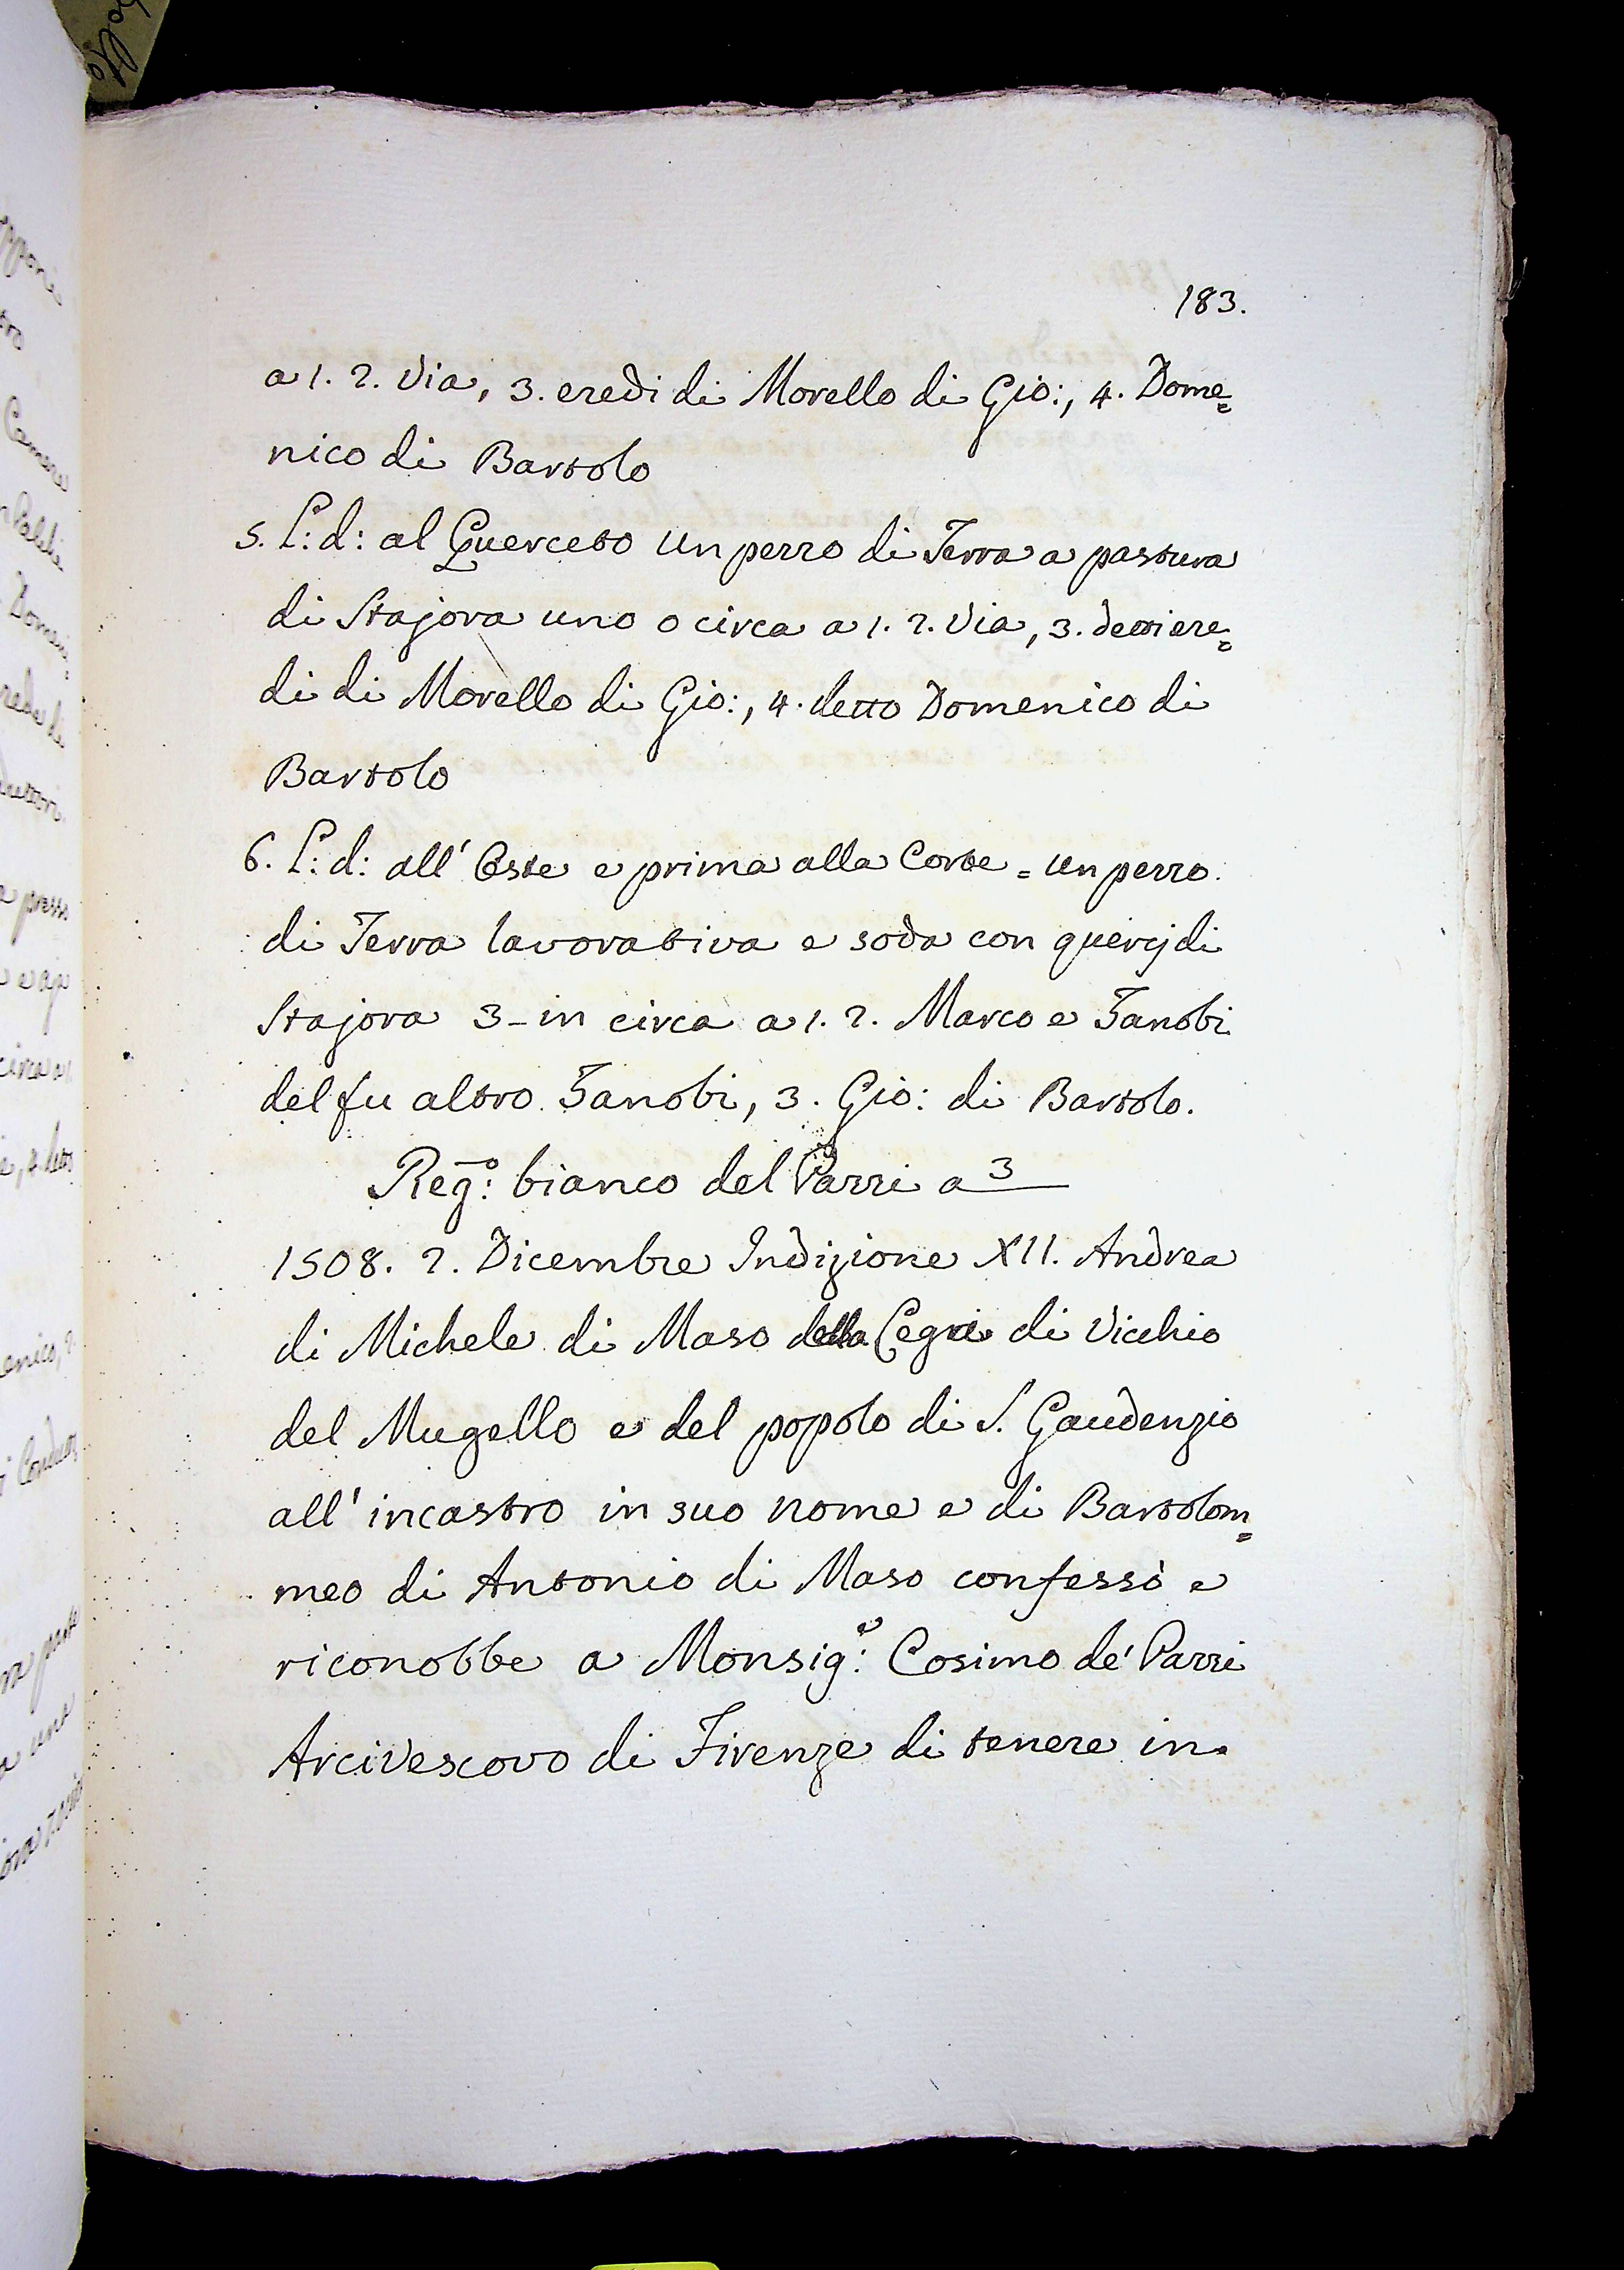 183.
a 1. 2. Via, 3. eredi di Morello di Gio:, 4. Dome=
nico di Bartolo
5. L: d: al Querceto un pezzo di Terra a pastura
di Stajora uno o circa a 1. 2. Via, 3. detti ere=
di di Morello di Gio:, 4. detto Domenico di
Bartolo
6. L: d: all' Oste e prima alla Corte = un pezzo
di Terra lavorativa e soda con quercj di
Stajora 3 - in circa a 1. 2. Marco e Zanobi
del fu altro Zanobi, 3. Gio: di Bartolo.
Reg:º bianco del Pazzi a 3
1508. 2. Dicembre Indizione XII. Andrea
di Michele di Maso della di Vicchio
del Mugello e del popolo di S. Gaudenzio
all' incastro in suo nome e di Bartolom=
meo di Antonio di Maso confessò e
riconobbe a Monsig:e Cosimo de' Pazzi
Arcivescovo di Firenze di tenere in